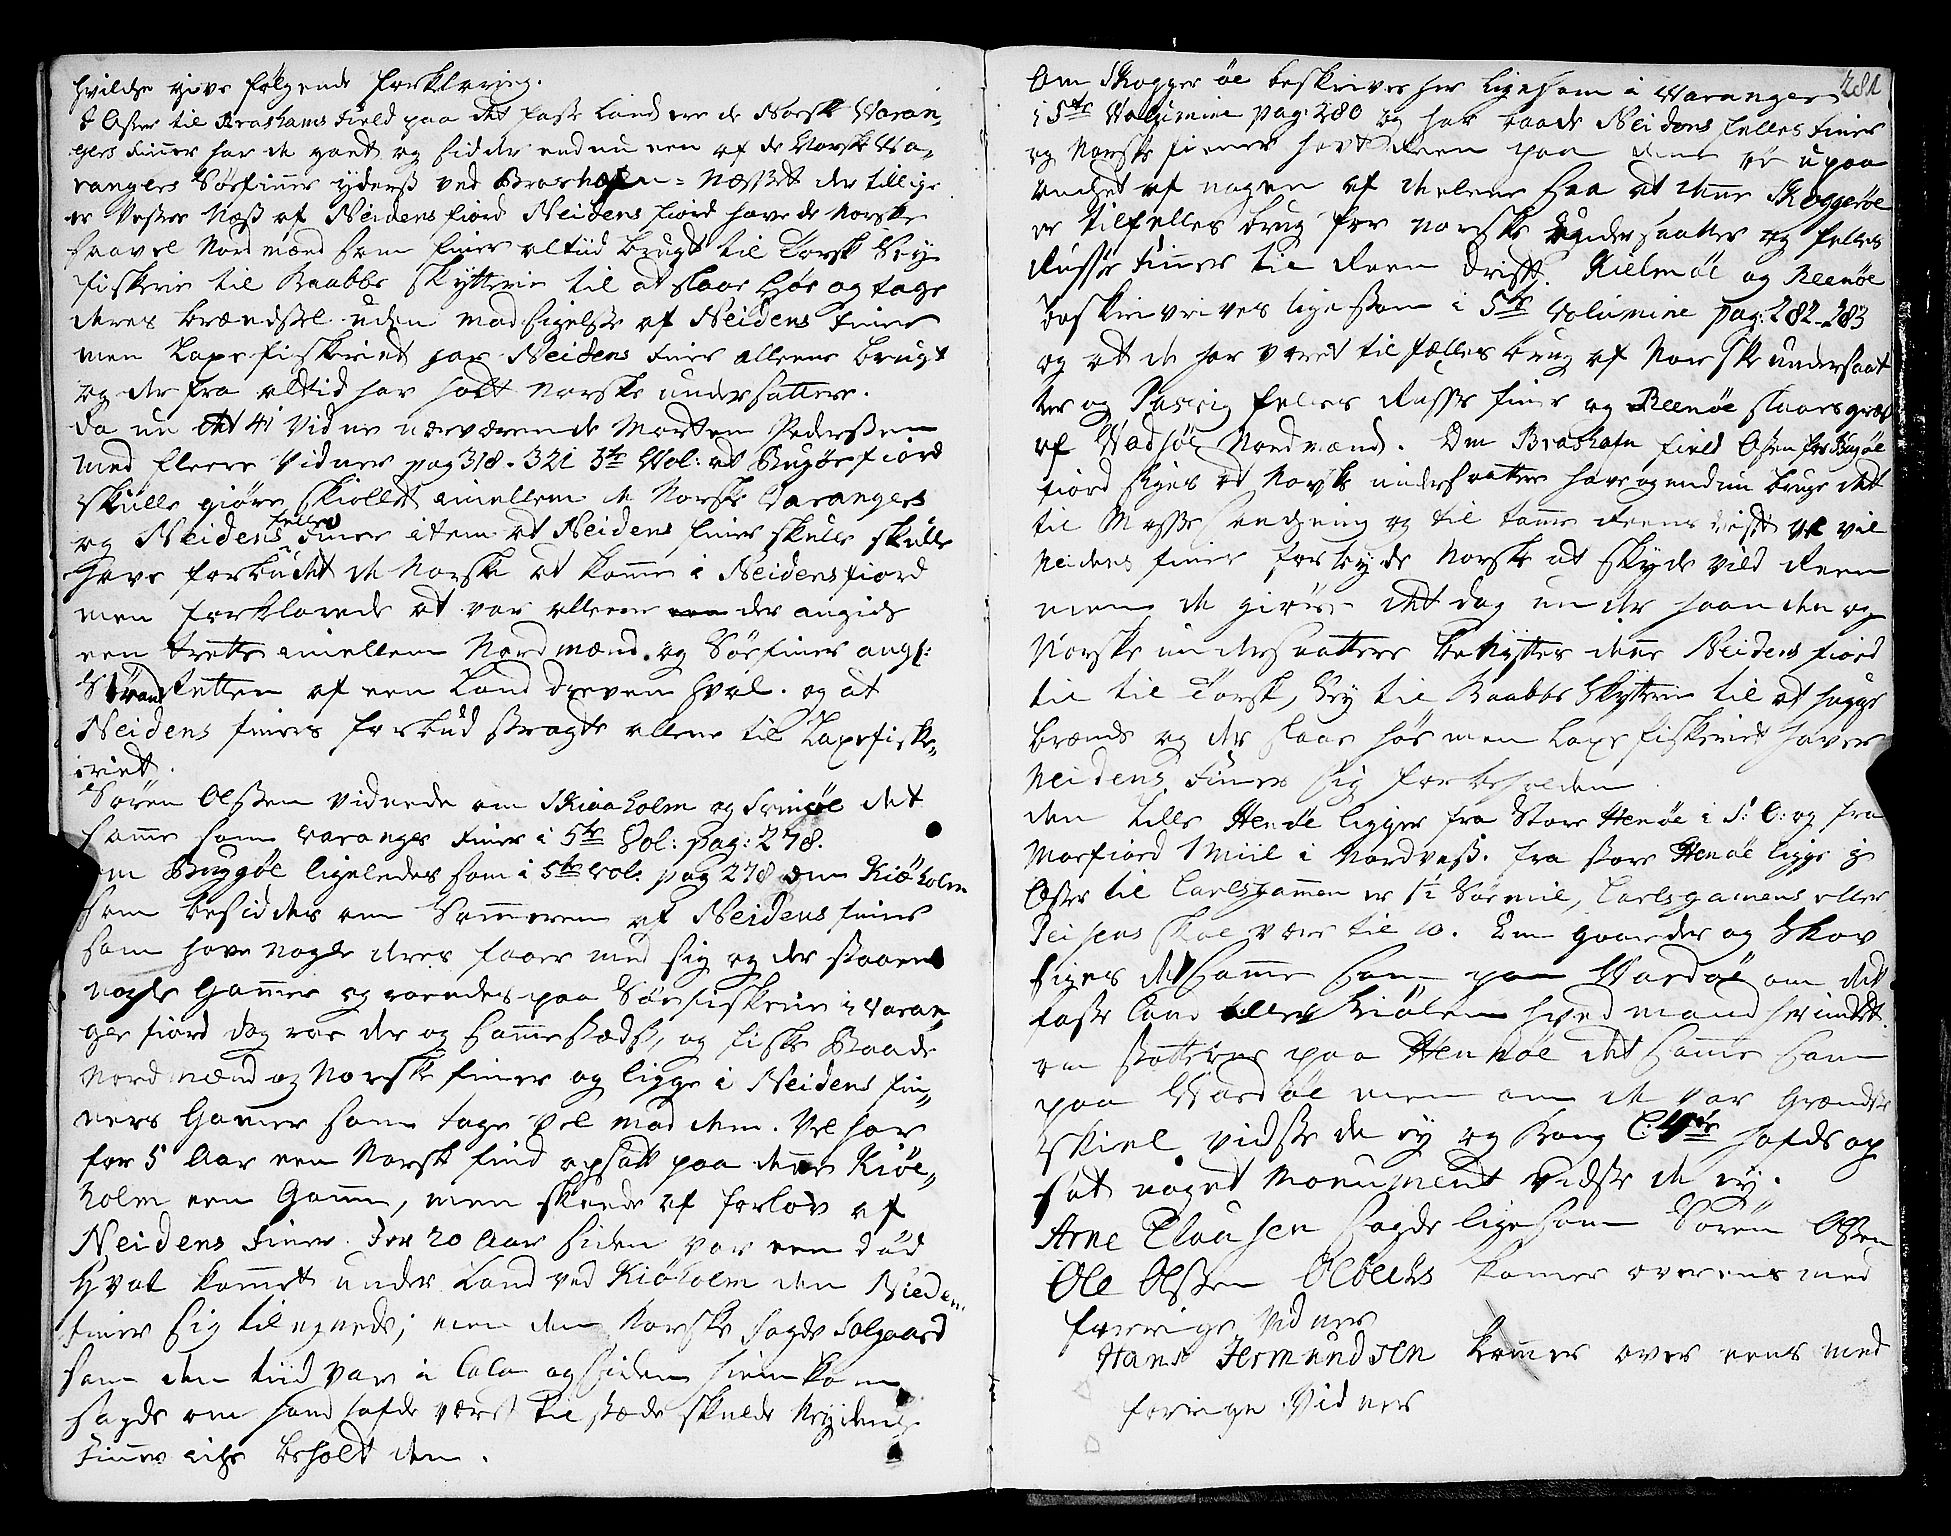 hvilche give følgende forklaring.
I Øster til Brashavns Field paa det faste Land ere de Norske Waran-
gers Finner har de gaaet og sidder endnu een af de Norske Wa-
rangers Søefinner yderst ved Brashafn-Næsset der tillige
er Vester Næss af Neidens fiord Neidens fiord have de Norske
saavel Nordmænd som finer altiid brugt til Torsk Sey
fiskerie til Kaabbe skytterie til at slaae høe og tage
deres brændssel uden modsigelsse af Neidens finer
men Laxe fiskeriet har Neidens finer alleene brugt
og derfra altid har holdt Norske undersatter.
Da nu det 4' Vidne nærværende Morten Pederssen
med fleere Vidner pag 318. 321 5te Vol: at Bugøefiord
skulle giøre skiellet imellem de Norske Warangers
og Neidens felles finer item at Neidens finer skulle skulle
have forbudet de Norske at komme i Neidensfiord
men forklarede at var alleene der angik
een trætte imellem Nordmænd og Søefiner angl:
Strand Retten af een Land dreven hval. og at
Neidens finers forbud stragte allene til Laxefiske-
riet.
Sören Olssen vidnede om Skiaaholm og det
samme som Waranger Finer i 5te Vol: pag: 278.
om Buggøe ligeledes som i 5te vol. pag 278 om Kiøeholm
som besiddes om Sommeren af Neidens finer
som have nogle deres faar med sig og der staaer
nogle Gammer og roendes paa Søe fiskerie i Waran-
ger fiord dog roe der og sammestæds, og fiske Baade
Nordmænd og Norske finer og ligge i Neidens fin-
ners Gamer som tage vel mod dem. Vel har
for 5 Aar een Norsk find opsatt paa denne Kiøe-
holm een Gamme, men skeede af forlov af
Neidens Finer. For 20 Aar siden var een død
Hval kommet under Land ved Kiøholm den Nieden-
finer sig tilegnede; men den Norske fogde Solgaard
som den tiid var i Cola og siden hiemkom
sagde om hand hafde været til stæde skulde Neydens
Finner icke beholdt den.

281
Om Skogger øe beskrives her ligesom i Waranger
i 5te Volumine pag: 280 og har baade Neidens felles finer
og Norske finer havt Reen paa denne øe upaa
andet af nogen af delene saa at denne Skoggerøe
er til felles brug for norske undersaatter og felles
Russe Finner til Reen drift. Kielmøe og Reenøe
beskrivrives ligessom i 5te Volumine pag: 282-283
og at de har været til fælles brug af Norske undersaat
ter og Pasvig felles Russe finer og Reenøe slaaes græs
af Wadsøe Nordmænd. Om Brashafn field Østen for Bugøe
fiord siges at Norske undersaatter have og endnu bruge det
til Mosse sanchning og til tamme Reens drift vil
Neidens finer forbyde Norske at skyde vild Reen
men de giøre det dog under haanden og
Norske undersaatter benytter denne Neidens fiord
til til Torsk, Sey til Kaabbe skytterie til at hugge
brænde og der slaae høe men Laxe fiskeriet haver
Neidens Finer sig forbeholden
den Lille Henøe ligger fra Store Henøe i S: O: og fra
Morfiord 1 Miil i Nordvest. fra store Henøe ligge i
Øster til Carlsgammen er 1½ Søe mil, Carlsgamens eller
Peisens skal være til 10. Om gaarder og skov
siges det samme som paa Wardøe om det
faste Land eller Kiølen hved mand her indtet.
om skatterne paa Hendøe det samme som
paa Wardøe men om de var Grændse
skiel vidste de ey og Kong C: 4de hafde op
sat noget Monument vidste de ey.
Arne Clausen sagde ligesom Sören Olssen
Ole Olssen komer overens med
forrige Vidner
Hans Jermundsen komer over eens med
forrige Vidner